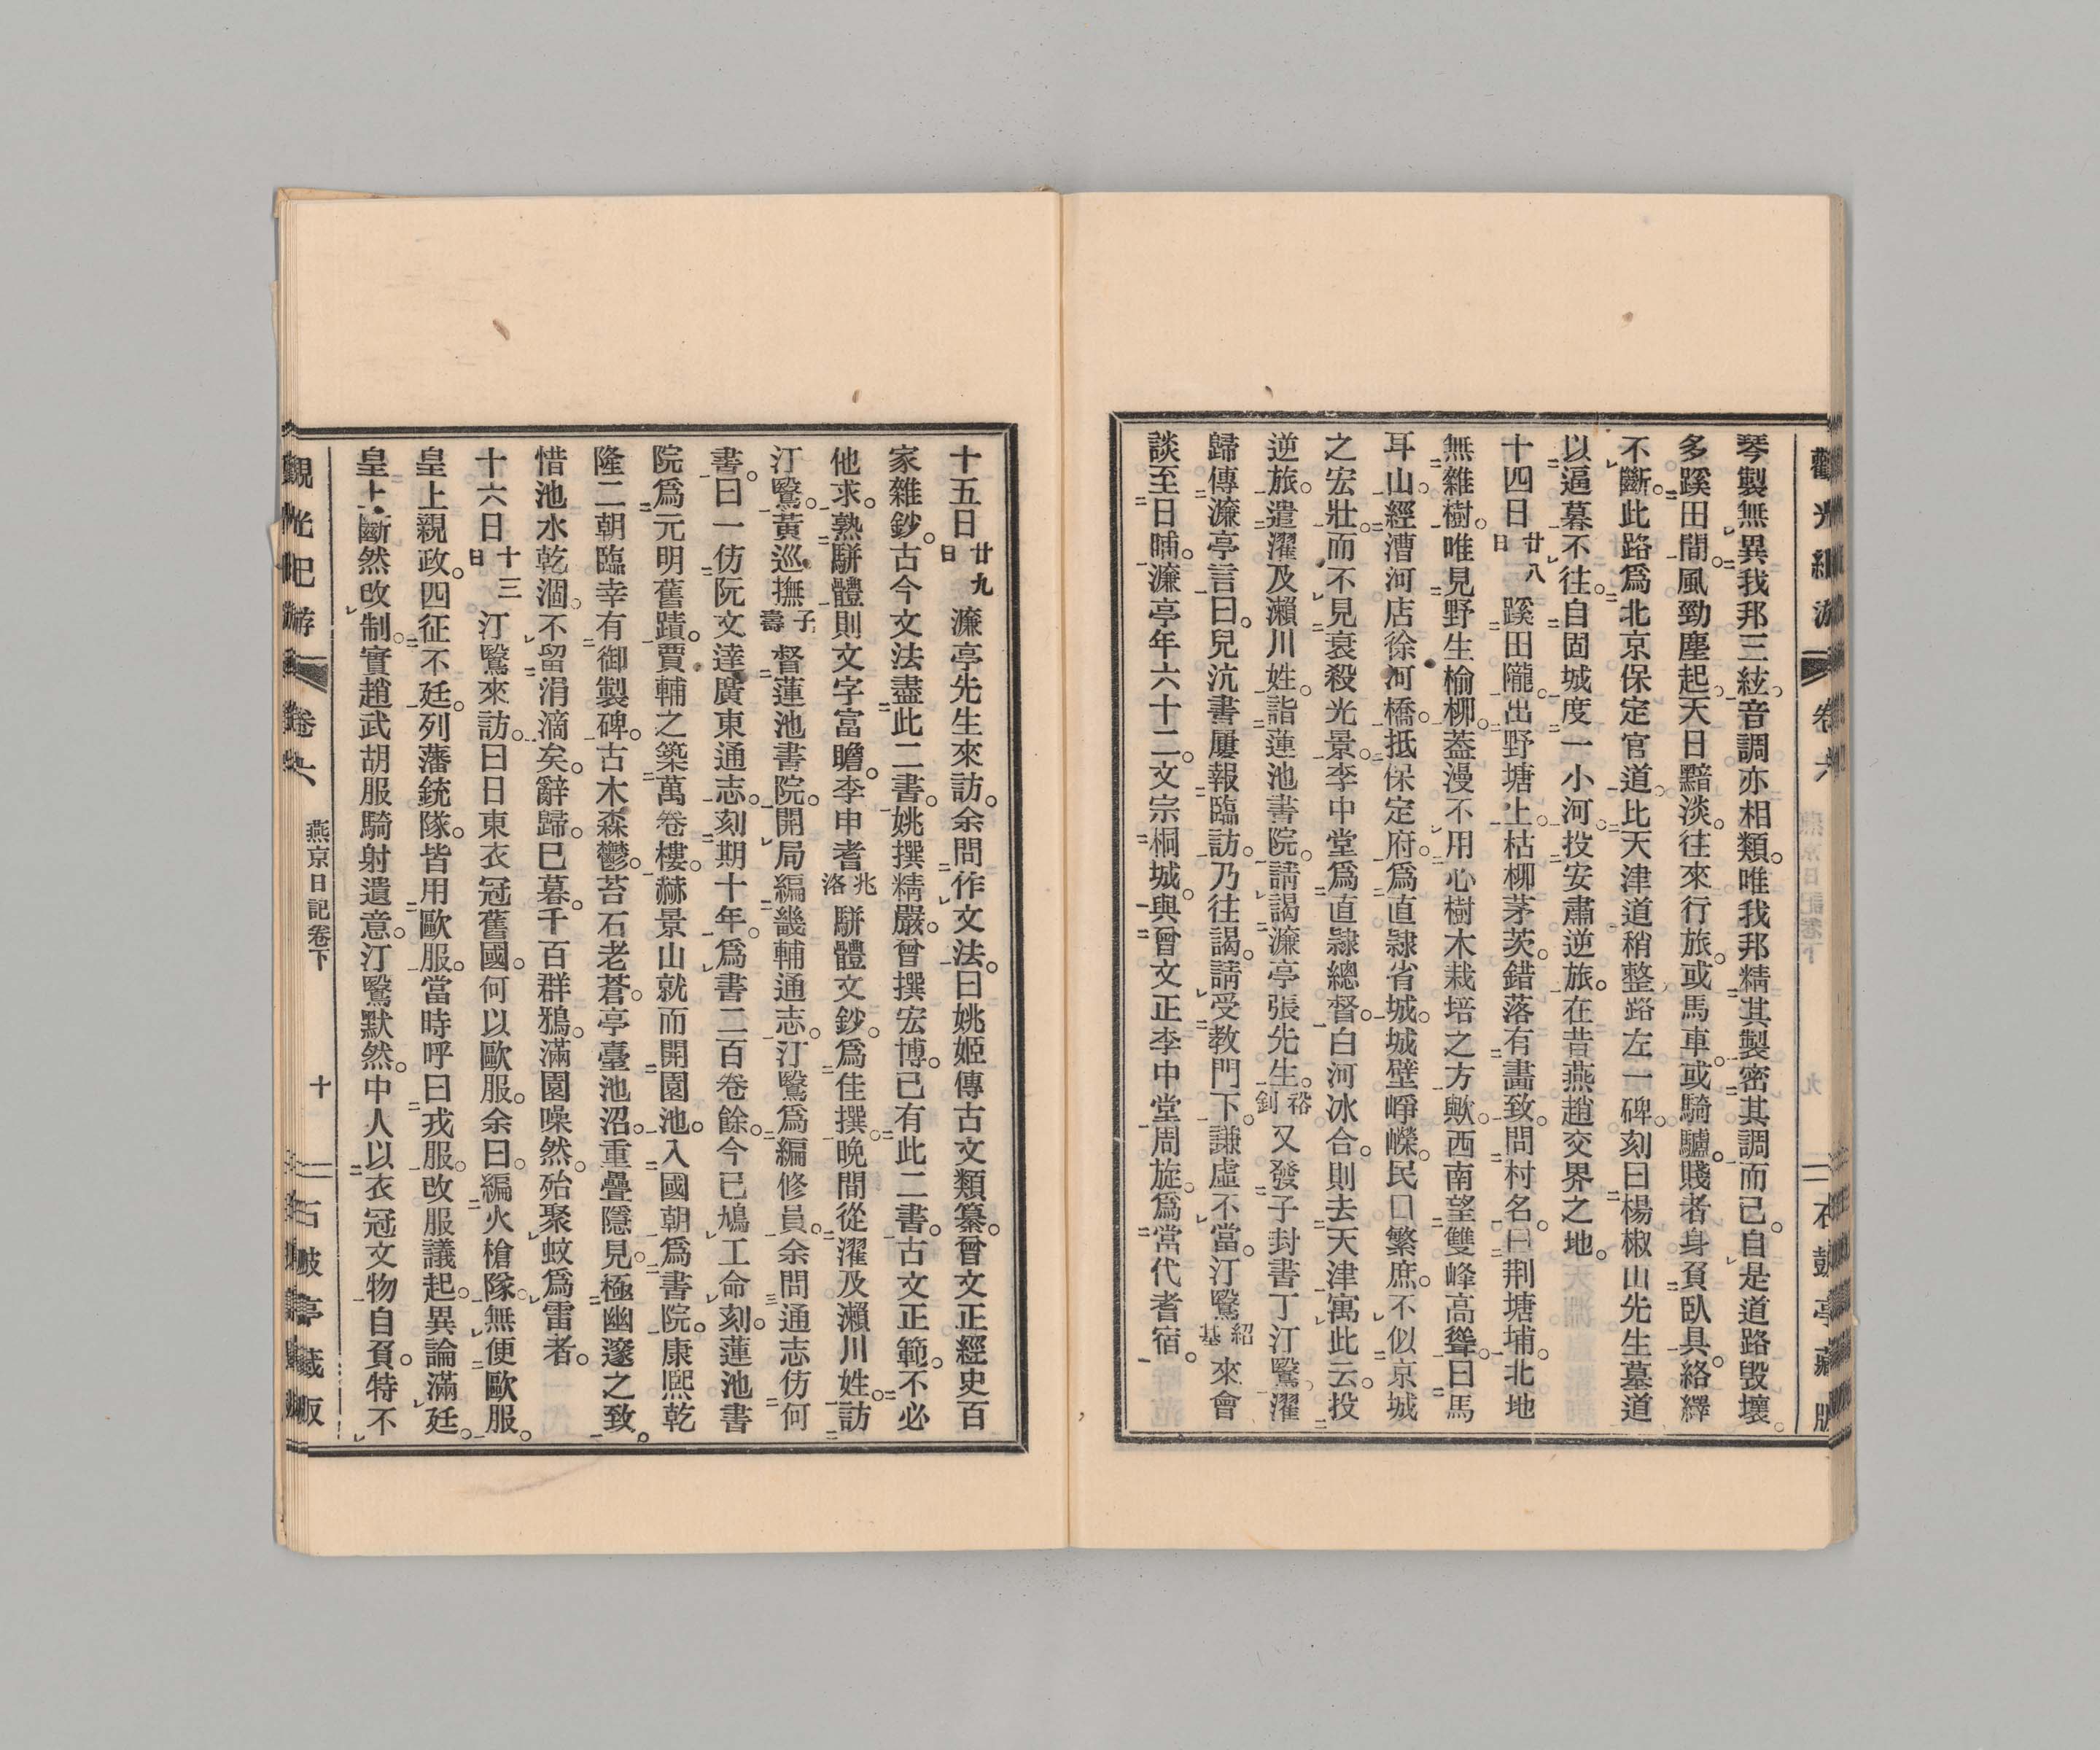 琴製無異我邦三絃。音調亦相類。唯我邦精其製密其調而已。自是道路毀壞。
多蹊田間。風勁塵起。天日黯淡。往來行旅。或馬車。或騎驢。賤者身負臥具。絡繹
不斷。此路爲北京保定官道。比天津道稍整。路左一碑。刻曰楊椒山先生墓道
以逼暮不往。自固城度一小河。投安肅逆旅。在昔燕趙交界之地。
十四日廿八日蹊田隴。出野塘上。枯柳茅茨。錯落有畫致。問村名。曰荆塘埔。北地
無雜樹。唯見野生榆柳。葢漫不用心樹木栽培之方歟。西南望雙峰高聳。曰馬
耳山。經漕河店徐河橋。抵保定府。爲直隷省城。城壁崢嶸。民口繁庶。不似京城
之宏壯。而不見衰殺光景。李中堂爲直隷總督。白河冰合。則去天津寓此云。投
逆旅。遣濯及瀨川姓。詣蓮池書院。請謁濂亭張先生。裕釗又發子封書丁汀鷖。濯
歸傳濂亭言。曰。兒沆書屢報臨訪。乃往謁。請受教門下。謙虛不當。汀鷖紹基來會
談至日晡。濂亭年六十二。文宗桐城。與曾文正李中堂周旋。爲當代耆宿。
觀光紀游 卷六 燕京日記卷下 九 石鼓亭藏版
十五日廿九日濂亭先生來訪。余問作文法。曰姚姬傳古文類纂。曾文正經史百
家雜鈔。古今文法盡此二書。姚撰精嚴。曾撰宏博。已有此二書。古文正範。不必
他求。熟駢體則文字富瞻。李申耆兆洛駢體文鈔。爲佳撰。晚間從濯及瀨川姓。訪
汀鷖。黃巡撫子壽督蓮池書院。開局編畿輔通志。汀鷖爲編修員。余問通志仿何
書。曰一仿阮文達廣東通志。刻期十年。爲書二百卷餘。今已鳩工命刻。蓮池書
院爲元明舊蹟。賈輔之築萬卷樓。赫景山就而開園池。入國朝爲書院。康熙乾
隆二朝臨幸有御製碑。古木森鬱。苔石老蒼。亭臺池沼。重疊隱見。極幽邃之致。
惜池水乾涸。不留涓滴矣。辭歸。巳暮。千百群鴉。滿園噪然。殆聚蚊爲雷者。
十六日十三日汀鷖來訪。曰日東衣冠舊國。何以歐服。余曰。編火槍隊。無便歐服。
皇上親政。四征不廷。列藩統隊。皆用歐服。當時呼曰戎服。改服議起。異論滿廷。
皇上斷然改制。實趙武胡服騎射遺意。汀鷖默然。中人以衣冠文物自負。特不
觀光紀游 卷六 燕京日記卷下 十 石鼓亭藏版